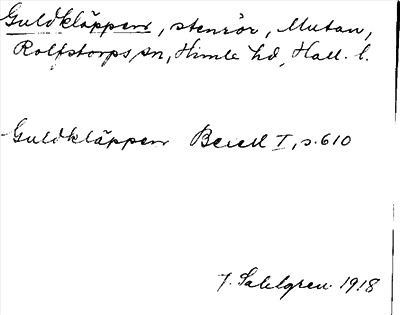 Guldkläppen, stenrör, Mutan,
Rolfstorps sn, Himle hd, Hall. l.
Guldkläppen Bexell I, s. 610
J. Sahlgren 1918